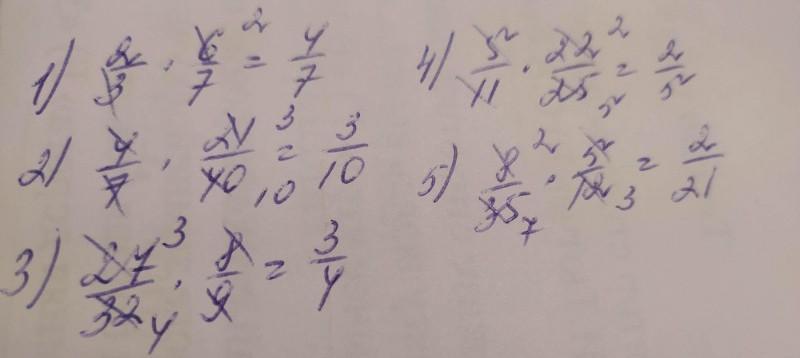 1) 2/3 · 6/7 2 = 4/7
2) 4/7 · 21/40 3 10 = 3/10
3) 27/32 3 4 · 8/9 = 3/4
4) 5/11 · 22/25 2 5 = 2/5
5) 8/35 2 7 · 5/12 3 = 2/21